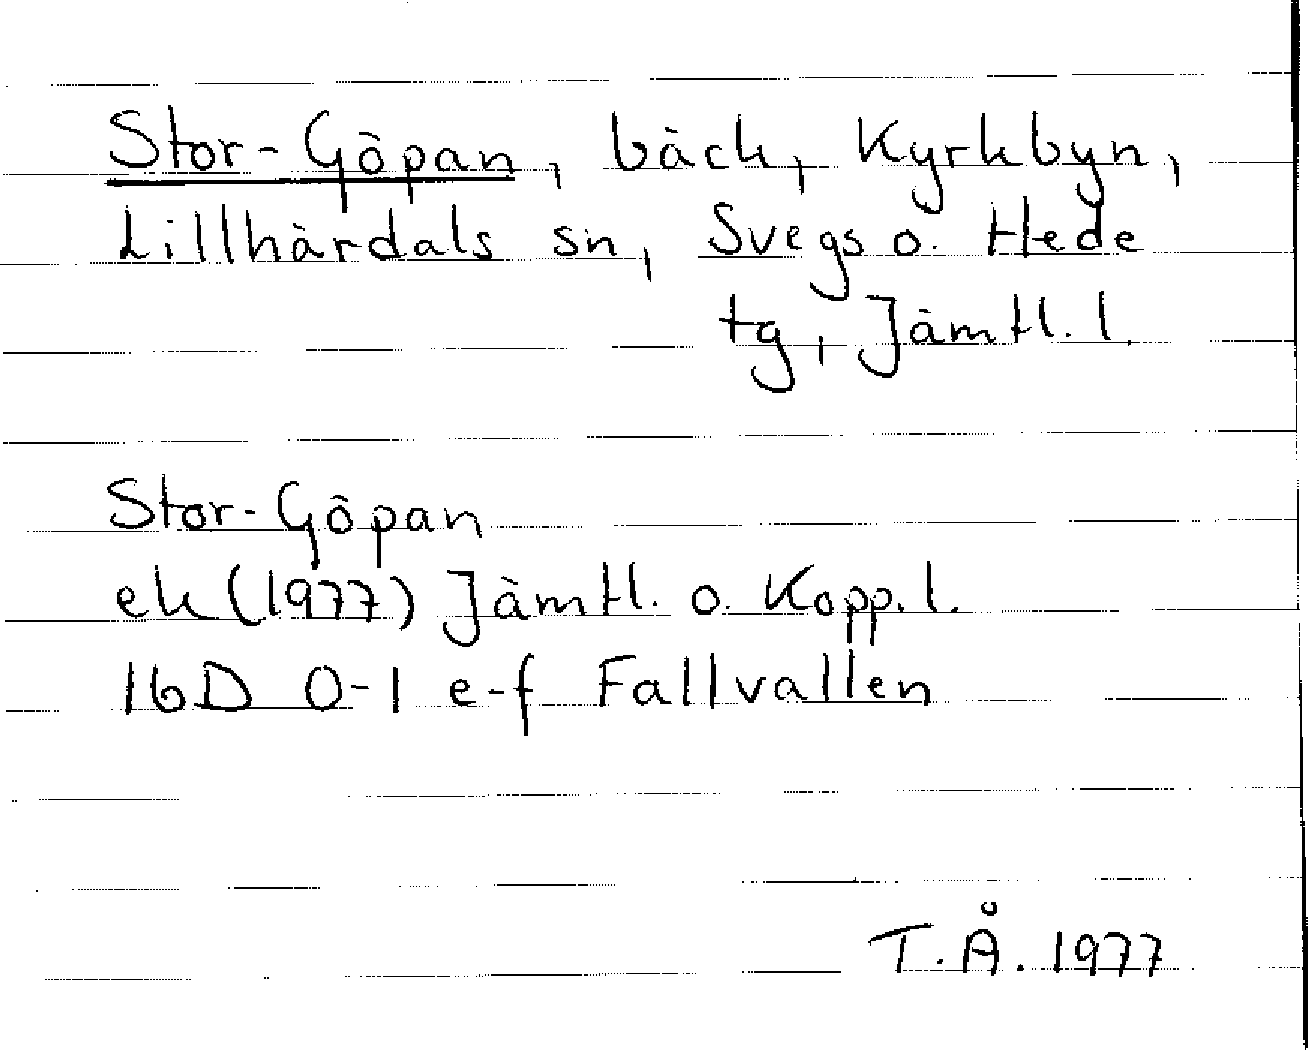 Stor-Göpan, bäck, Kyrkbyn,
Lillhärdals sn, Svegs o. Hede
tg, Jämtl. l.
Stor-Göpan
ek (1977) Jämtl. o. Kopp. l.
16D 0-1 e-f Fallvallen
T.Å. 1977